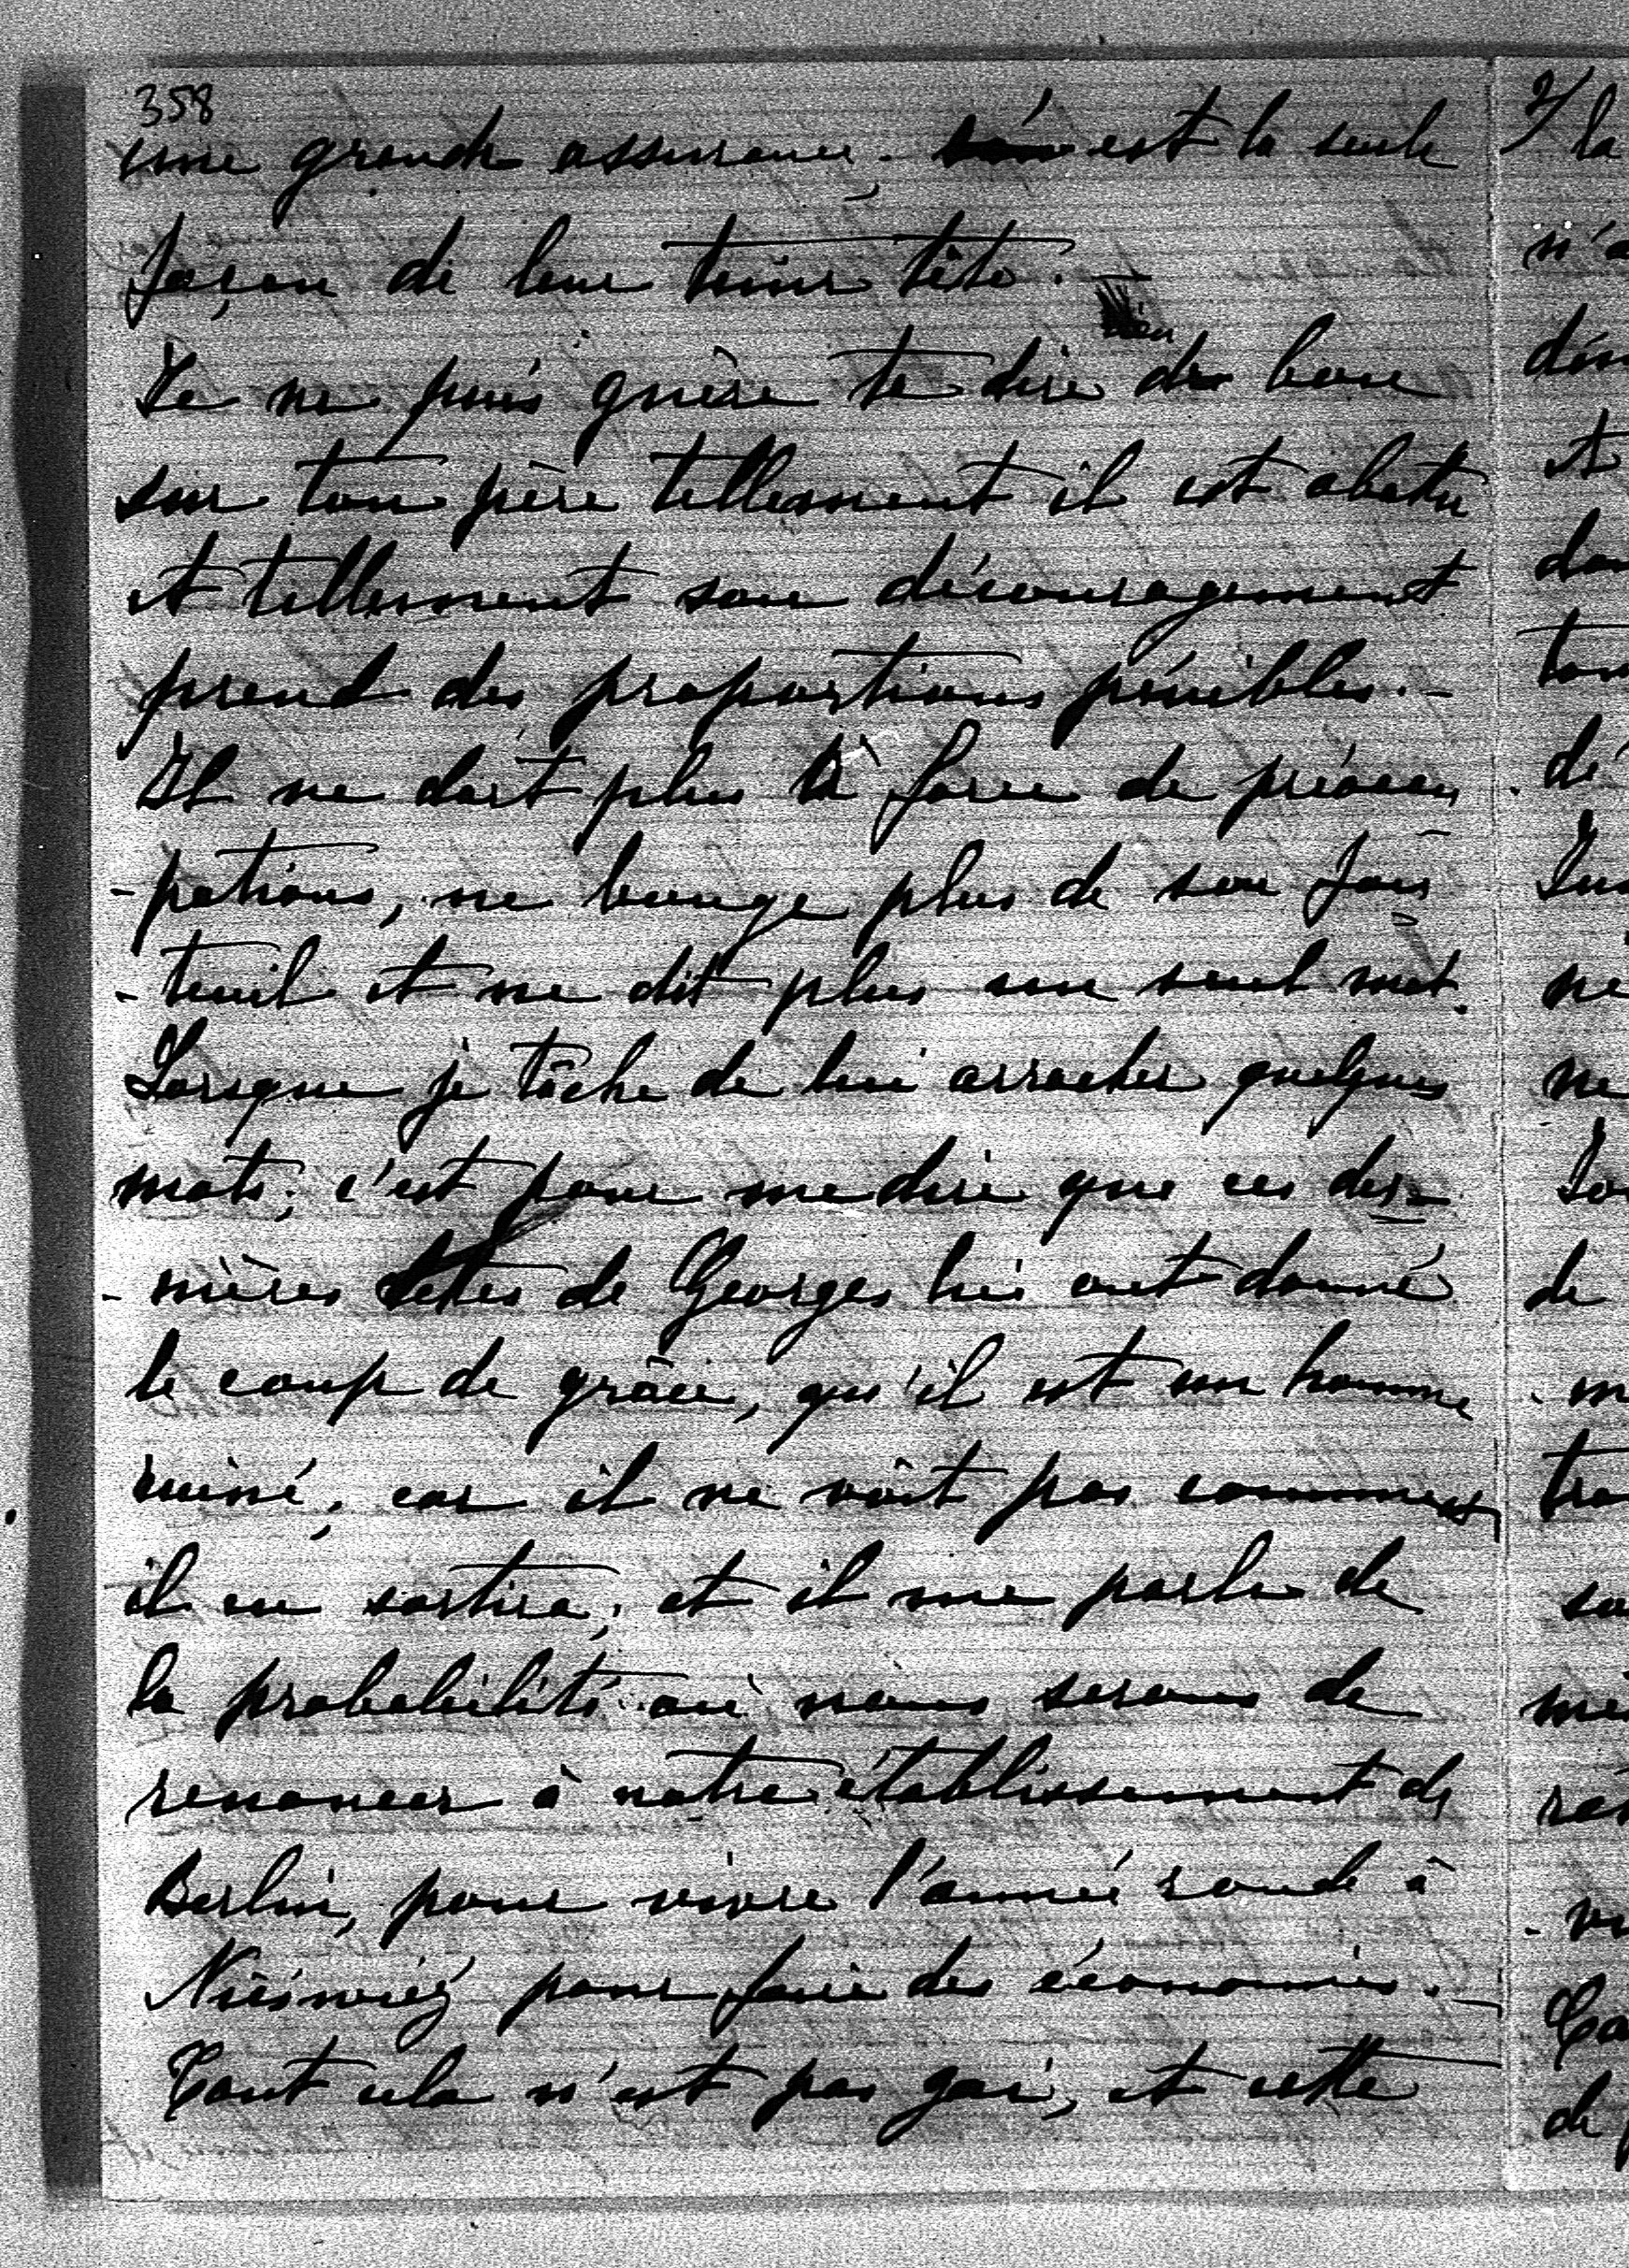 358
une grande assurance, c'est la seule
façon de leur tenir tête. —
rien
Je ne puis guère te dire de bon
sur ton père tellement il est abattu
et tellement son découragement
prend des proportions pénibles. —
Il ne dort plus à force de préoccu
-pations, ne bouge plus de son fau
-teuil et ne dit plus un seul mot.
Lorsque je tâche de lui arracher quelques
mots, c'est pour me dire que ces der-
-nières dettes de Georges lui ont donné
le coup de grâce, qu'il est un homme
ruiné, car il ne voit pas comment
il en sortira, et il me parle de
la probabilité où nous serons de
renoncer à notre établissement de
Berlin, pour vivre l'année ronde à
Nieśwież pour faire des économies. —
Tout cela n'est pas gai, et cette
2/ la
n'a
et
de
ne